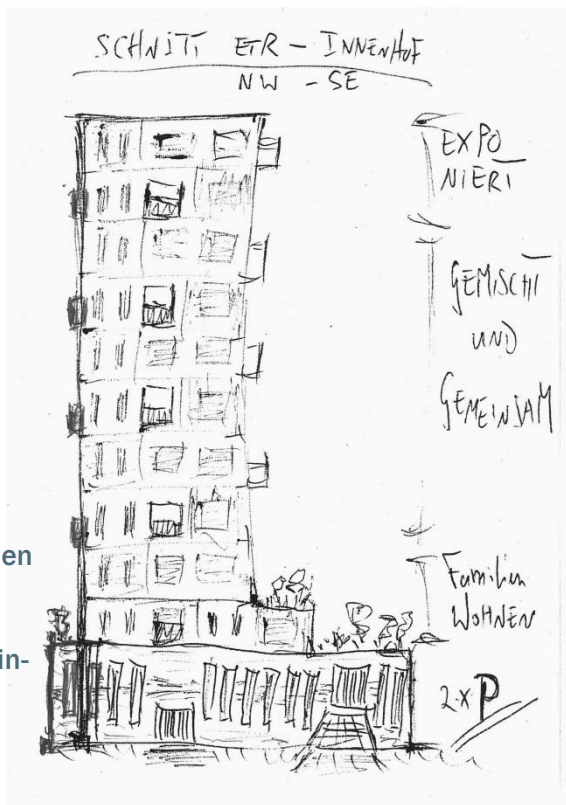 SCHNITT ETR - INNENHOF
NW - SE
EXPO
NIERT
GEMISCHT
UND
GEMEINSAM
en
Familien
WOHNEN
in-
2x P